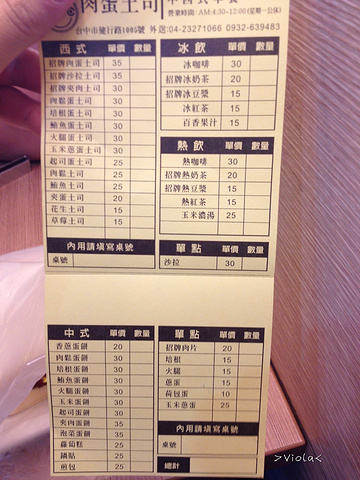 肉蛋土司
營業時間:AM:4:30~12:00(星期一公休)
台中市健行路1005號 外送:04-23271066 0932-639483
西式 單價 數量
招牌肉蛋土司 35
招牌沙拉土司 35
招牌夾肉土司 30
肉鬆蛋土司 30
培根蛋土司 30
鮪魚蛋土司 30
火腿蛋土司 30
玉米蔥蛋土司 30
起司蛋土司 25
肉鬆土司 25
鮪魚土司 25
夾蛋土司 20
花生土司 15
草莓土司 15
內用請填寫桌號
桌號
冰飲 單價 數量
冰咖啡 30
招牌冰奶茶 20
招牌冰豆漿 15
冰紅茶 15
百香果汁 15
熱飲 單價 數量
熱咖啡 30
招牌熱奶茶 20
招牌熱豆漿 15
熱紅茶 15
玉米濃湯 25
單點 單價 數量
沙拉 30
中式 單價 數量
香蔥蛋餅 20
肉鬆蛋餅 30
培根蛋餅 30
鮪魚蛋餅 30
火腿蛋餅 30
玉米蛋餅 30
起司蛋餅 30
夾肉蛋餅 35
泡菜蛋餅 35
蘿蔔糕 25
鍋貼 25
煎包 25
單點 單價 數量
招牌肉片 20
培根 15
火腿 15
蔥蛋 15
荷包蛋 10
玉米蔥蛋 25
內用請填寫桌號
桌號
總計
>Viola<